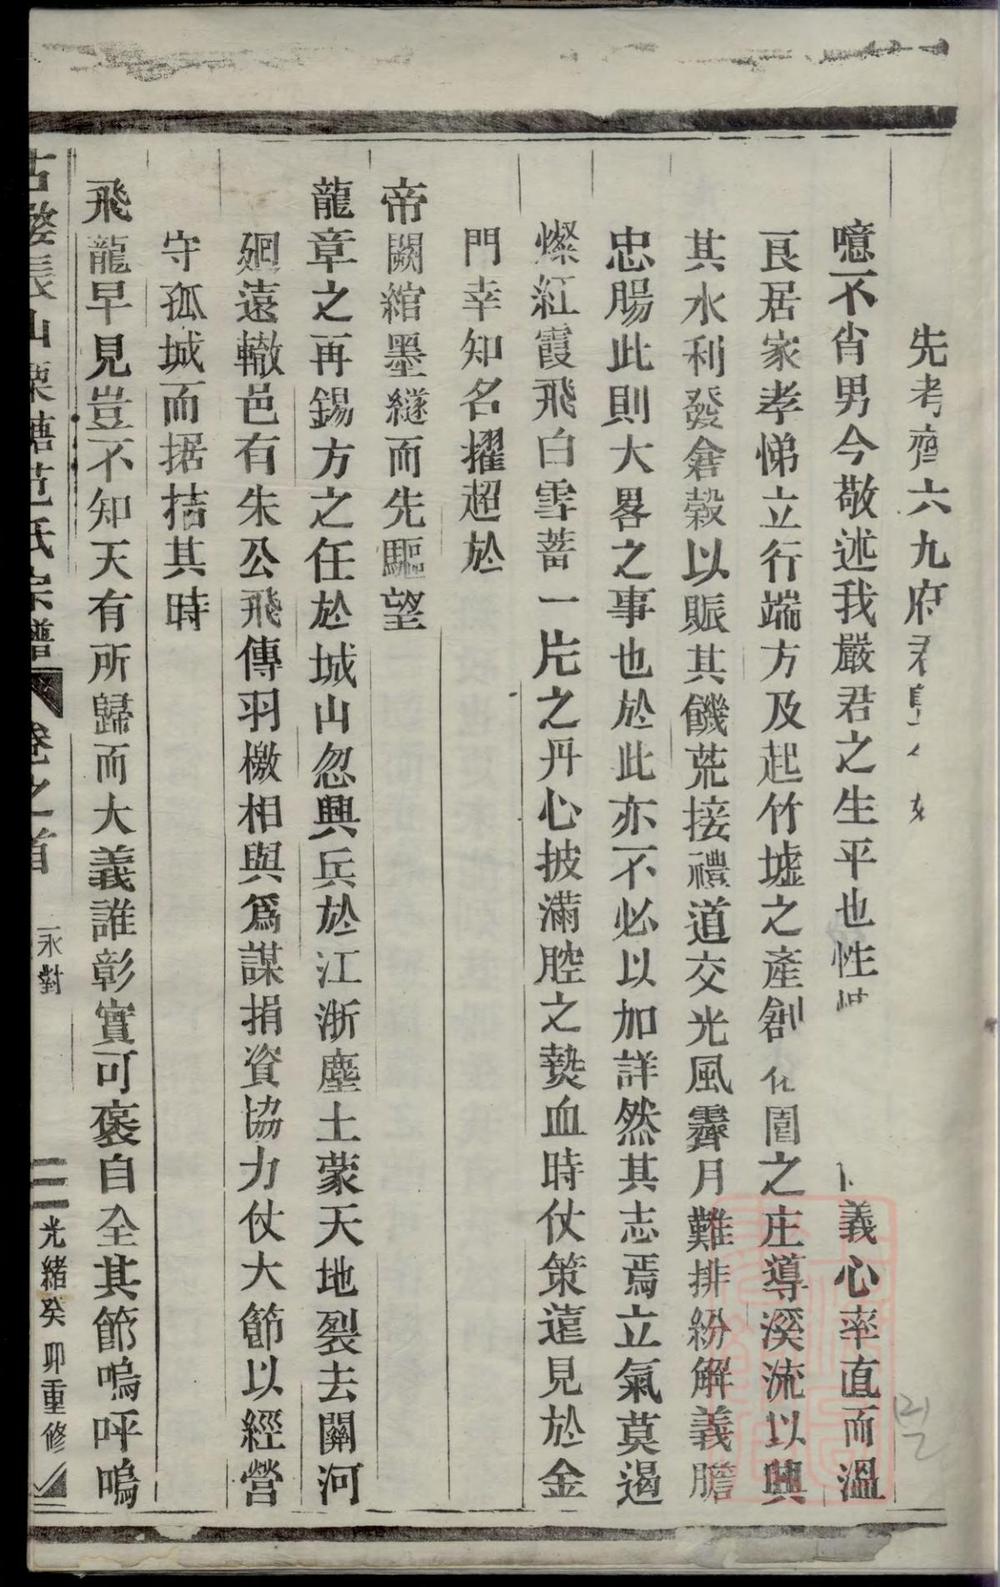 先考齊六九府君
噫不肖男今敬述我嚴君之生平也性 義心率直而溫
良居家孝悌立行端方及起竹墟之產創 圍之庄導溪流以興
其水利發倉穀以賑其饑荒接禮道交光風霽月難排紛解義膽
忠腸此則大畧之事也於此亦不必以加詳然其志焉立氣莫遏
燦紅霞飛白雪蓄一片之丹心披滿腔之熱血時仗策遠見於金
門幸知名擢超於
帝闕綰墨繸而先驅望
龍章之再錫方之任於城山忽興兵於江浙塵土蒙天地裂去關河
廻遠轍邑有朱公飛傳羽檄相與爲謀捐資協力仗大節以經營
守孤城而据拮其時
飛龍早見豈不知天有所歸而大義誰彰實可褒自全其節嗚呼嗚
古婺長山栗塘范氏宗譜 卷之首 永對 三 光緒癸卯重修